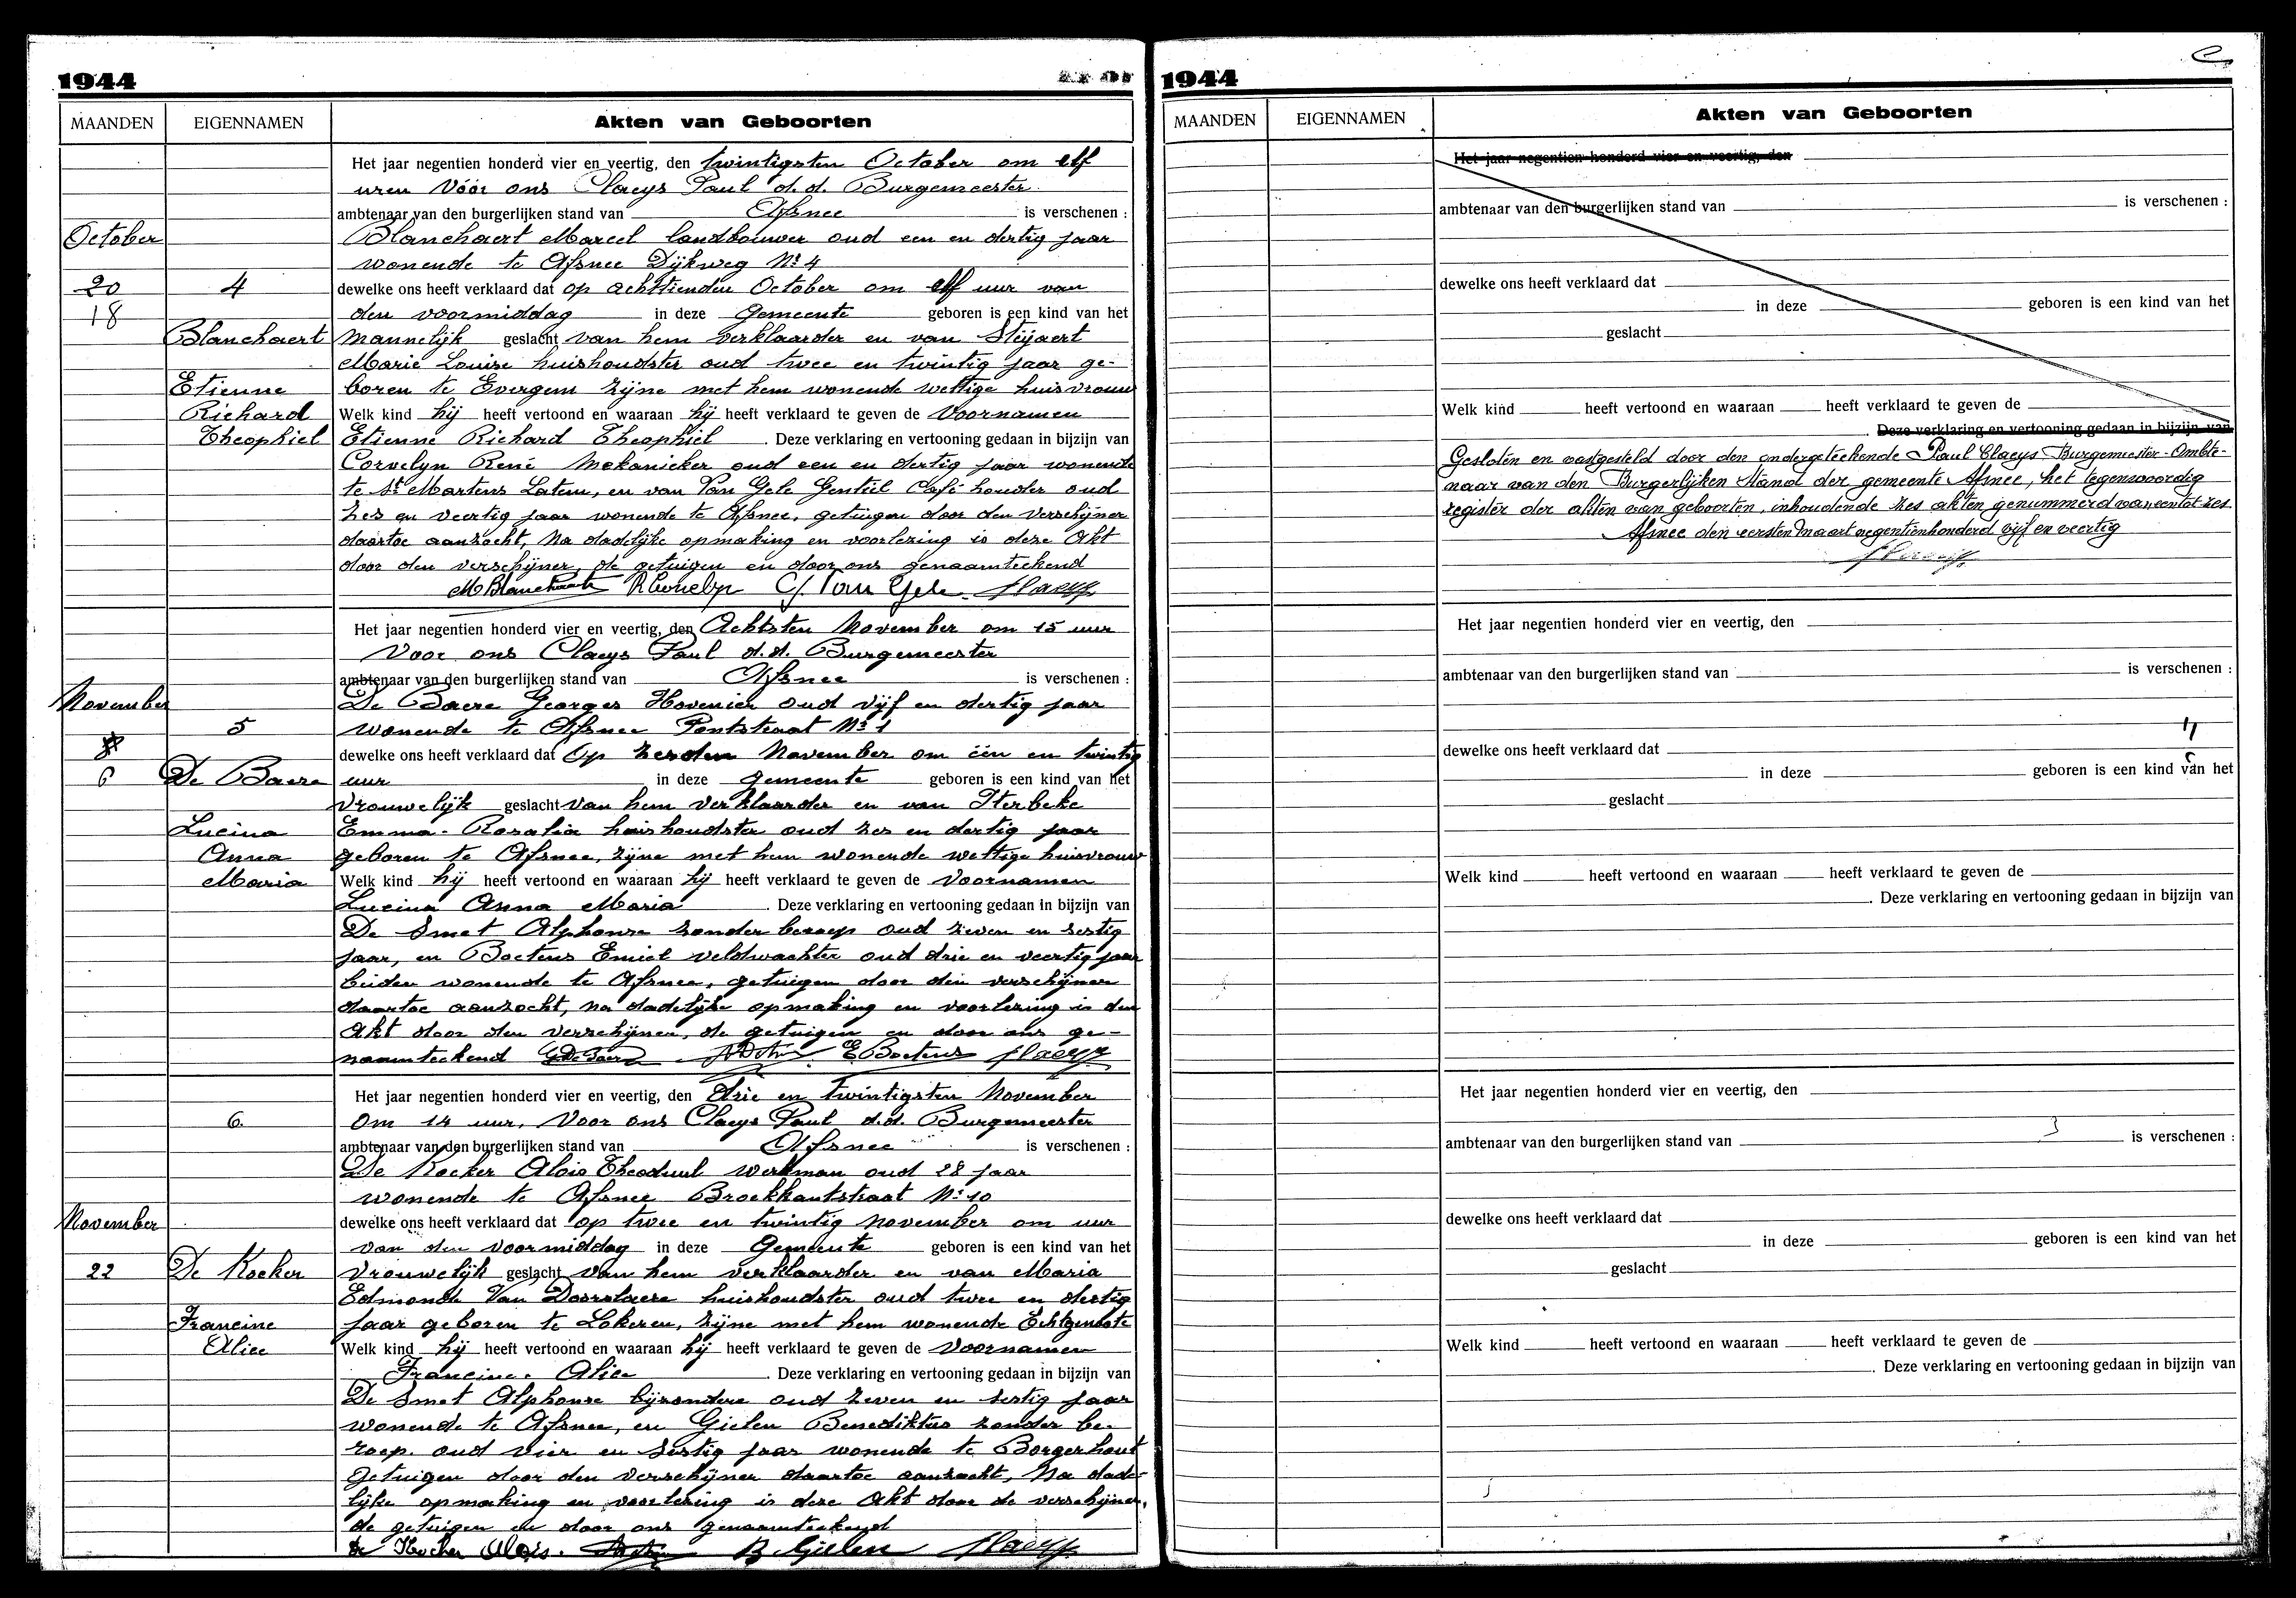 1944
MAANDEN EIGENNAMEN Akten van Geboorten
Het jaar negentien honderd vier en veertig, den twintigsten October om elf
uren Vóór ons Claeys Paul d.d. Burgemeester
ambtenaar van den burgerlijken stand van Afsnee is verschenen :
October Blanchaert Marcel landbouwer oud een en dertig jaar
wonende te Afsnee Dijkweg Nr 4
20 4 dewelke ons heeft verklaard dat op achttienden October om elf uur van
18 den voormiddag in deze Gemeente geboren is een kind van het
Blanchaert Mannelijk geslacht van hem verklaarder en van Steyaert
Marie Louise huishoudster oud twee en twintig jaar ge-
Etienne boren te Evergem zijne met hem wonende wettige huisvrouw
Richard Welk kind hij heeft vertoond en waaraan hij heeft verklaard te geven de Voornamen
Theophiel Etienne Richard Theophiel . Deze verklaring en vertooning gedaan in bijzijn van
Corvelyn René Mekanieker oud een en dertig jaar wonende
te St Martens Latem, en van Van Gele Gentiel Café houder oud
zes en veertig jaar wonende te Afsnee, getuigen door den verschijner
daartoe aanzocht, Na dadelijke opmaking en voorlezing is deze Akt
door den verschijner, de getuigen en door ons genaamteekend
M Blanchaert R Corvelyn G. Van Gele Claeys
Het jaar negentien honderd vier en veertig, den Achtsten November om 15 uur
Voor ons Claeys Paul d.d. Burgemeester
ambtenaar van den burgerlijken stand van Afsnee is verschenen :
November De Baere Georges Hovenier oud vijf en dertig jaar
5 wonende te Afsnee Pontstraat Nr 1
8 dewelke ons heeft verklaard dat Op zesden November om één en twintig
6 De Baere uur in deze gemeente geboren is een kind van het
Vrouwelijk geslacht van hem verklaarder en van Iterbeke
Lucina Emma-Rosalia huishoudster oud zes en dertig jaar
Anna geboren te Afsnee, zijne met hem wonende wettige huisvrouw
Maria Welk kind hij heeft vertoond en waaraan hij heeft verklaard te geven de Voornamen
Lucina Anna Maria . Deze verklaring en vertooning gedaan in bijzijn van
De Smet Alphonse zonder beroep oud zeven en sestig
jaar, en Boeteus Emiel veldwachter oud drie en veertig jaar
beiden wonende te Afsnee, getuigen door den verschijner
daartoe aanzocht, na dadelijke opmaking en voorlezing is deze
Akt door den verschijner, de getuigen en door ons ge-
naamteekend G De Baere E Boeteus Claeys
Het jaar negentien honderd vier en veertig, den Drie en twintigsten November
6. Om 14 uur, Voor ons Claeys Paul d.d. Burgemeester
ambtenaar van den burgerlijken stand van Afsnee is verschenen :
De Kocker Alois Theoduul werkman oud 28 jaar
wonende te Afsnee Broekkantstraat Nr 10
November dewelke ons heeft verklaard dat op twee en twintig november om uur
van den voormiddag in deze Gemeente geboren is een kind van het
22 De Kocker Vrouwelijk geslacht van hem verklaarder en van Maria
Edmonde Van Doorslaere huishoudster oud twee en dertig
Francine jaar geboren te Lokeren, zijne met hem wonende Echtgenoote
Alice Welk kind hij heeft vertoond en waaraan hij heeft verklaard te geven de Voornamen
Francine. Alice . Deze verklaring en vertooning gedaan in bijzijn van
De Smet Alphonse bijzondere oud zeven en sestig jaar
wonende te Afsnee, en Gielen Benediktus zonder be-
roep. oud vier en sestig jaar wonende te Borgerhout
getuigen door den verschijner daartoe aanzocht, Na dade-
lijke opmaking en voorlezing is deze Akt door de verschijner,
de getuigen en door ons genaamteekend
de Kocker Alois. B Gielen Claeys
1944
MAANDEN EIGENNAMEN Akten van Geboorten
Het jaar negentien honderd vier en veertig, den
ambtenaar van den burgerlijken stand van is verschenen :
dewelke ons heeft verklaard dat
in deze geboren is een kind van het
geslacht
Welk kind heeft vertoond en waaraan heeft verklaard te geven de
. Deze verklaring en vertooning gedaan in bijzijn van
Gesloten en vastgesteld door den ondergeteekende Paul Claeys Burgemeester-Ambte-
naar van den Burgerlijken Stand der gemeente Afsnee, het tegenwoordig
register der akten van geboorten, inhoudende zes akten genummerd van een tot zes.
Afsnee den eersten Maart negentienhonderd vijf en veertig
Claeys
Het jaar negentien honderd vier en veertig, den
ambtenaar van den burgerlijken stand van is verschenen :
dewelke ons heeft verklaard dat
in deze geboren is een kind van het
geslacht
Welk kind heeft vertoond en waaraan heeft verklaard te geven de
. Deze verklaring en vertooning gedaan in bijzijn van
Het jaar negentien honderd vier en veertig, den
ambtenaar van den burgerlijken stand van is verschenen :
dewelke ons heeft verklaard dat
in deze geboren is een kind van het
geslacht
Welk kind heeft vertoond en waaraan heeft verklaard te geven de
. Deze verklaring en vertooning gedaan in bijzijn van